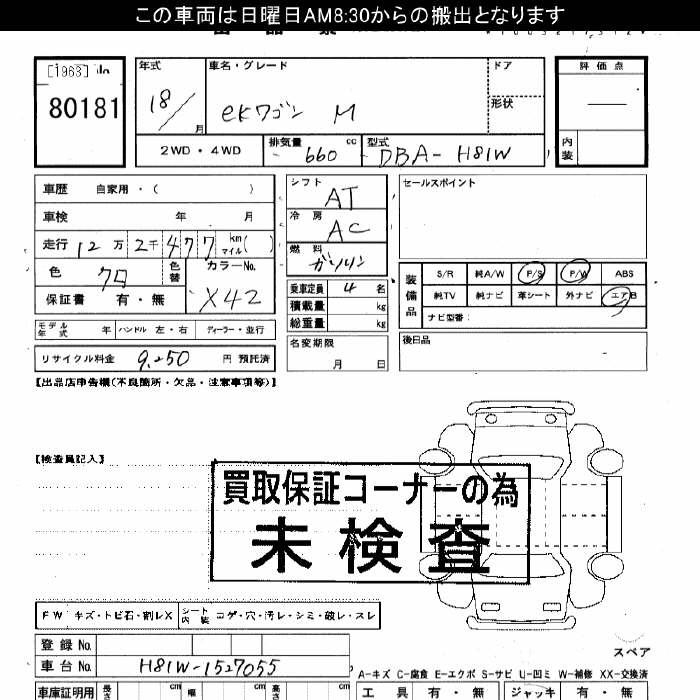 この車両は日曜日AM8:30からの搬出となります
[1963]
80181
年式 車名・グレード ドア 評価点
18/ 月 eKワゴン M 形状
2WD・4WD 排気量 660 cc 型式 DBA-H81W 内装
車歴 自家用・( ) シフト AT セールスポイント
車検 年 月 冷房 AC
走行 12万2千477 km マイル( ) 燃料 ガソリン
色 クロ 色替 カラーNo. X42
保証書 有・無
乗車定員 4 名
積載量 kg
総重量 kg
装備品 S/R 純A/W P/S P/W ABS
純TV 純ナビ 革シート 外ナビ エアB
ナビ型番:
モデル年式 年 ハンドル 左・右 ディーラー・並行
名変期限 月 日
後日品
リサイクル料金 9,250 円 預託済
【出品店申告欄(不良箇所・欠品・注意事項等)】
【検査員記入】
買取保証コーナーの為
未検査
FW キズ・トビ石・割レX シート内装 コゲ・穴・汚レ・シミ・破レ・スレ
登録No.
車台No. H81W-1527055
スペア
A-キズ C-腐食 E-エクボ S-サビ U-凹ミ W-補修 XX-交換済
車庫証明用 長さ cm 幅 cm 高さ cm 工具 有・無 ジャッキ 有・無